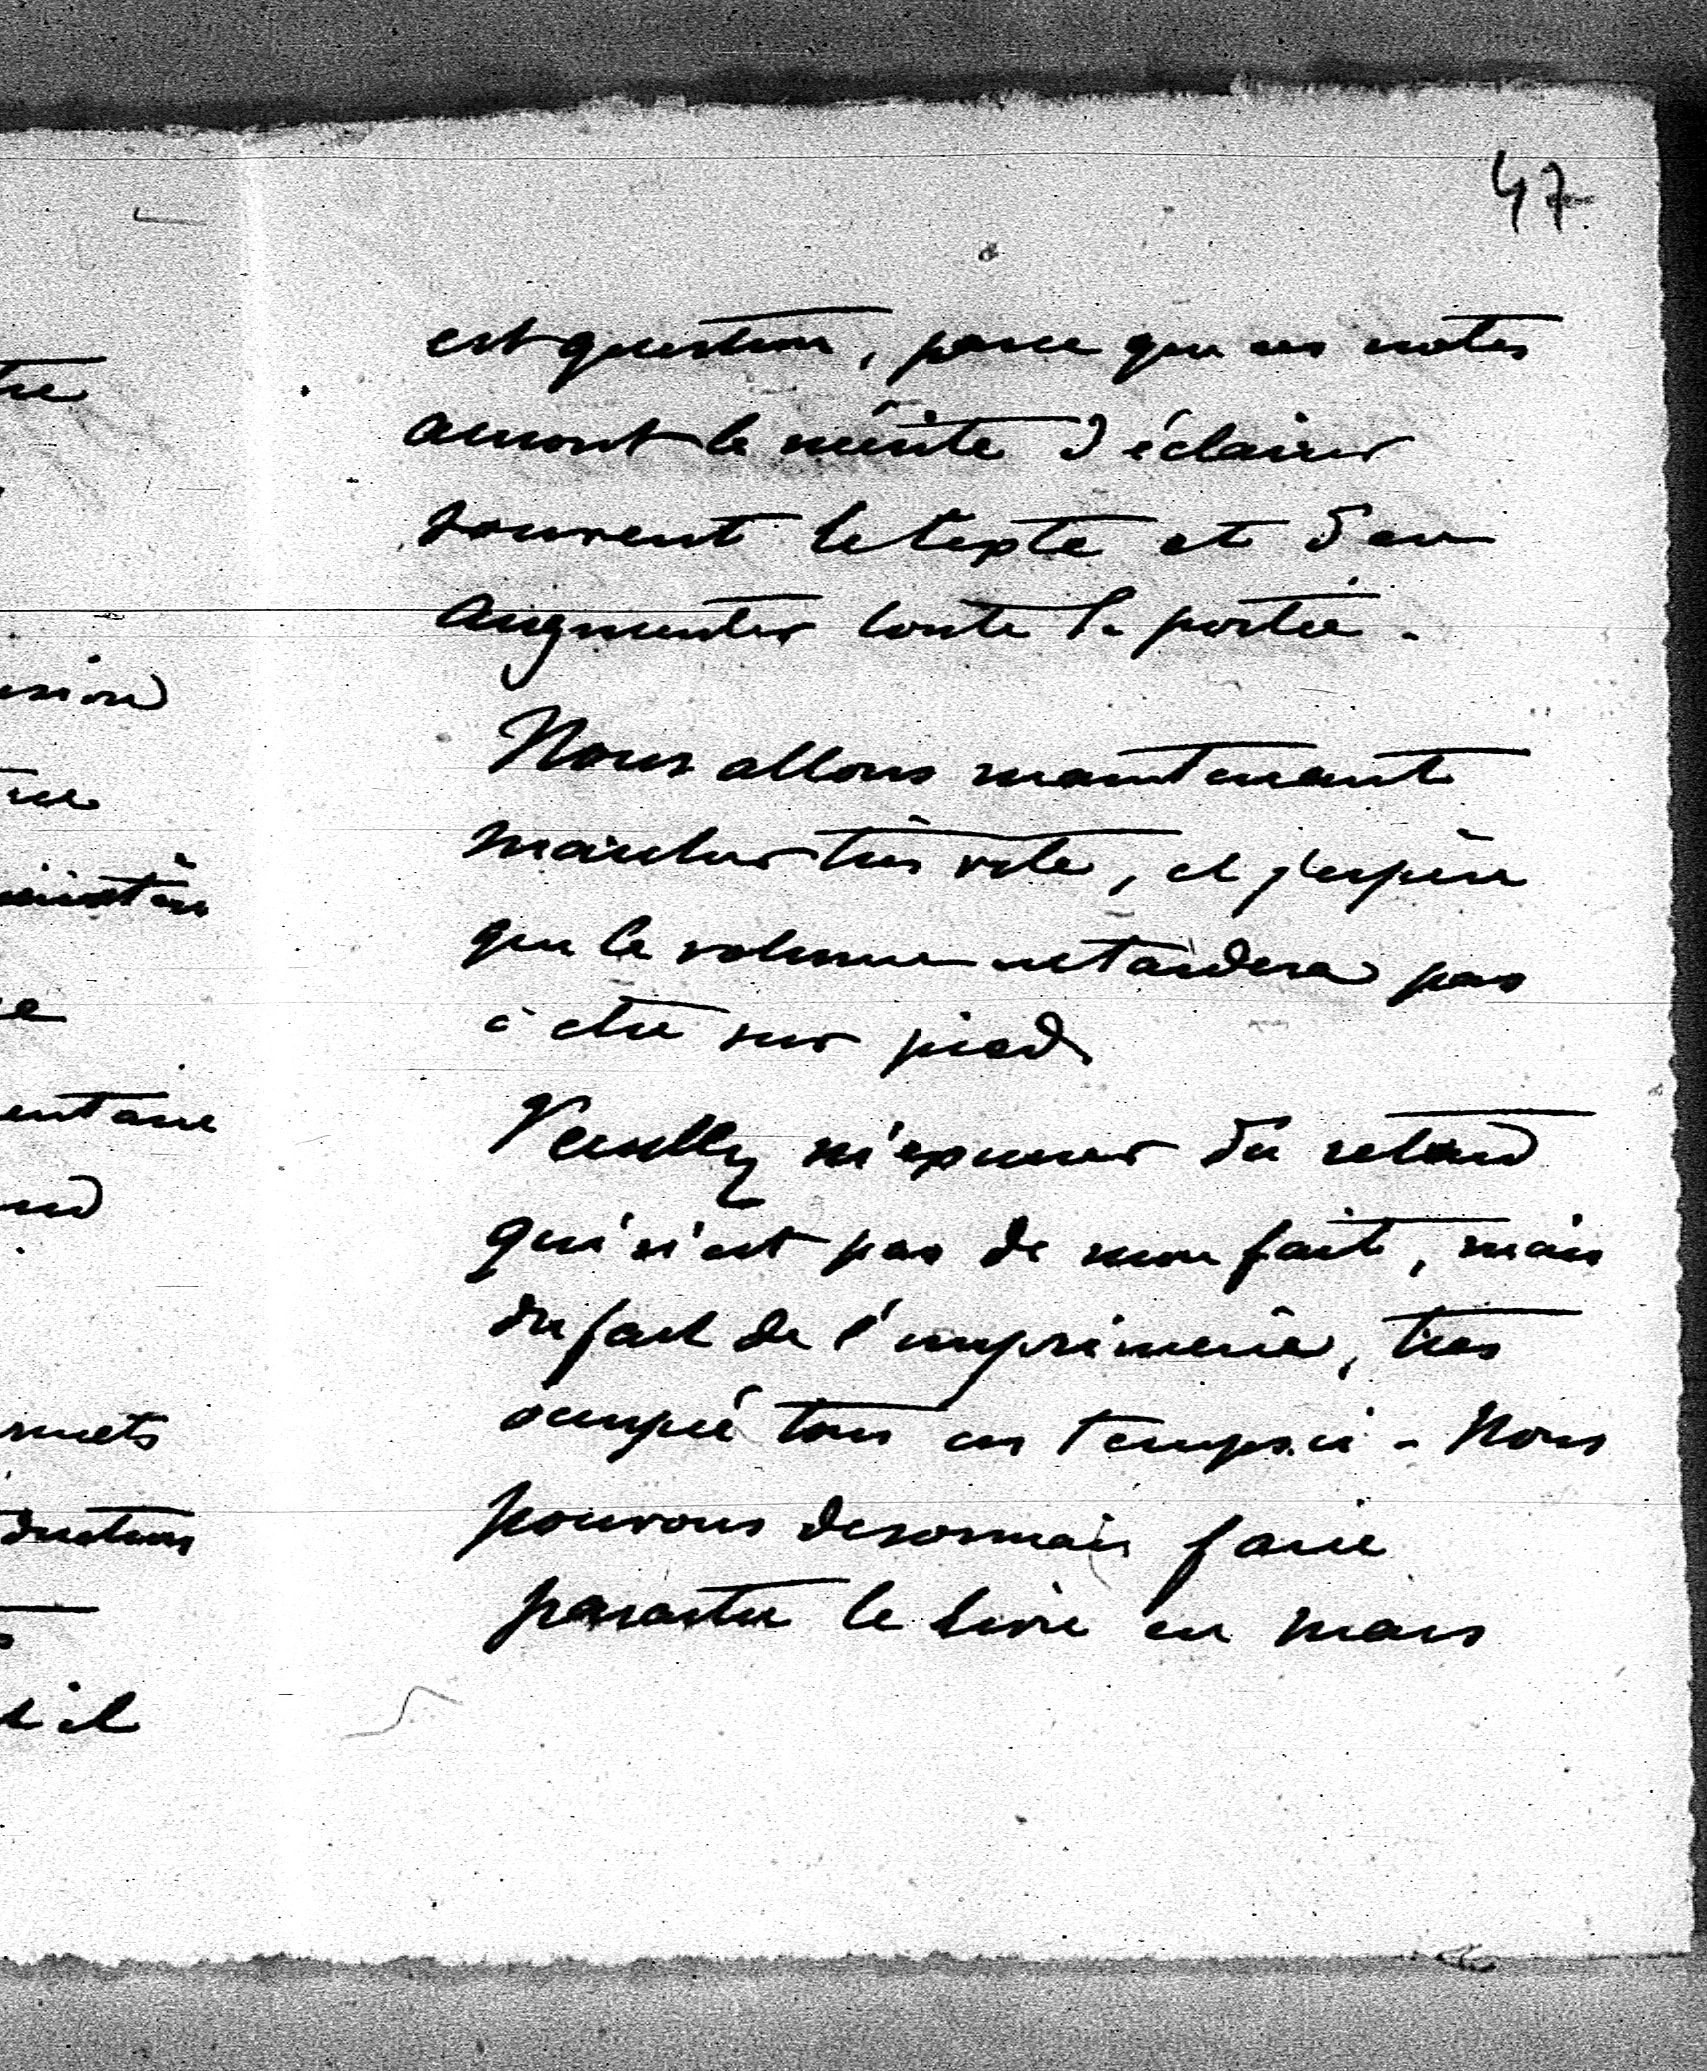 47
est question, parce que ces notes
auront le mérite d'éclairer
souvent le texte et d'en
augmenter toute la portée.
Nous allons maintenant
marcher très vite, et j'espère
que le volume ne tardera pas
à être sur pied
Veuillez m'excuser du retard
qui n'est pas de mon fait, mais
du fait de l'imprimerie, très
occupée tous ces temps-ci. Nous
pouvons desormais faire
paraitre le livre en mars
usion
entaire
il